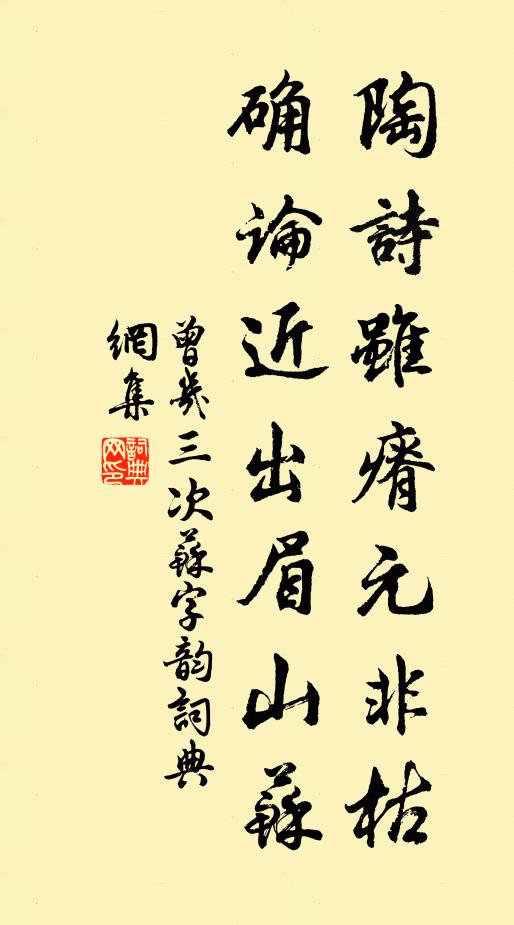 陶詩雖瘠元非枯
确論近出眉山蘇
曾幾三次蘇字韵詞典
網集
詞典
网印